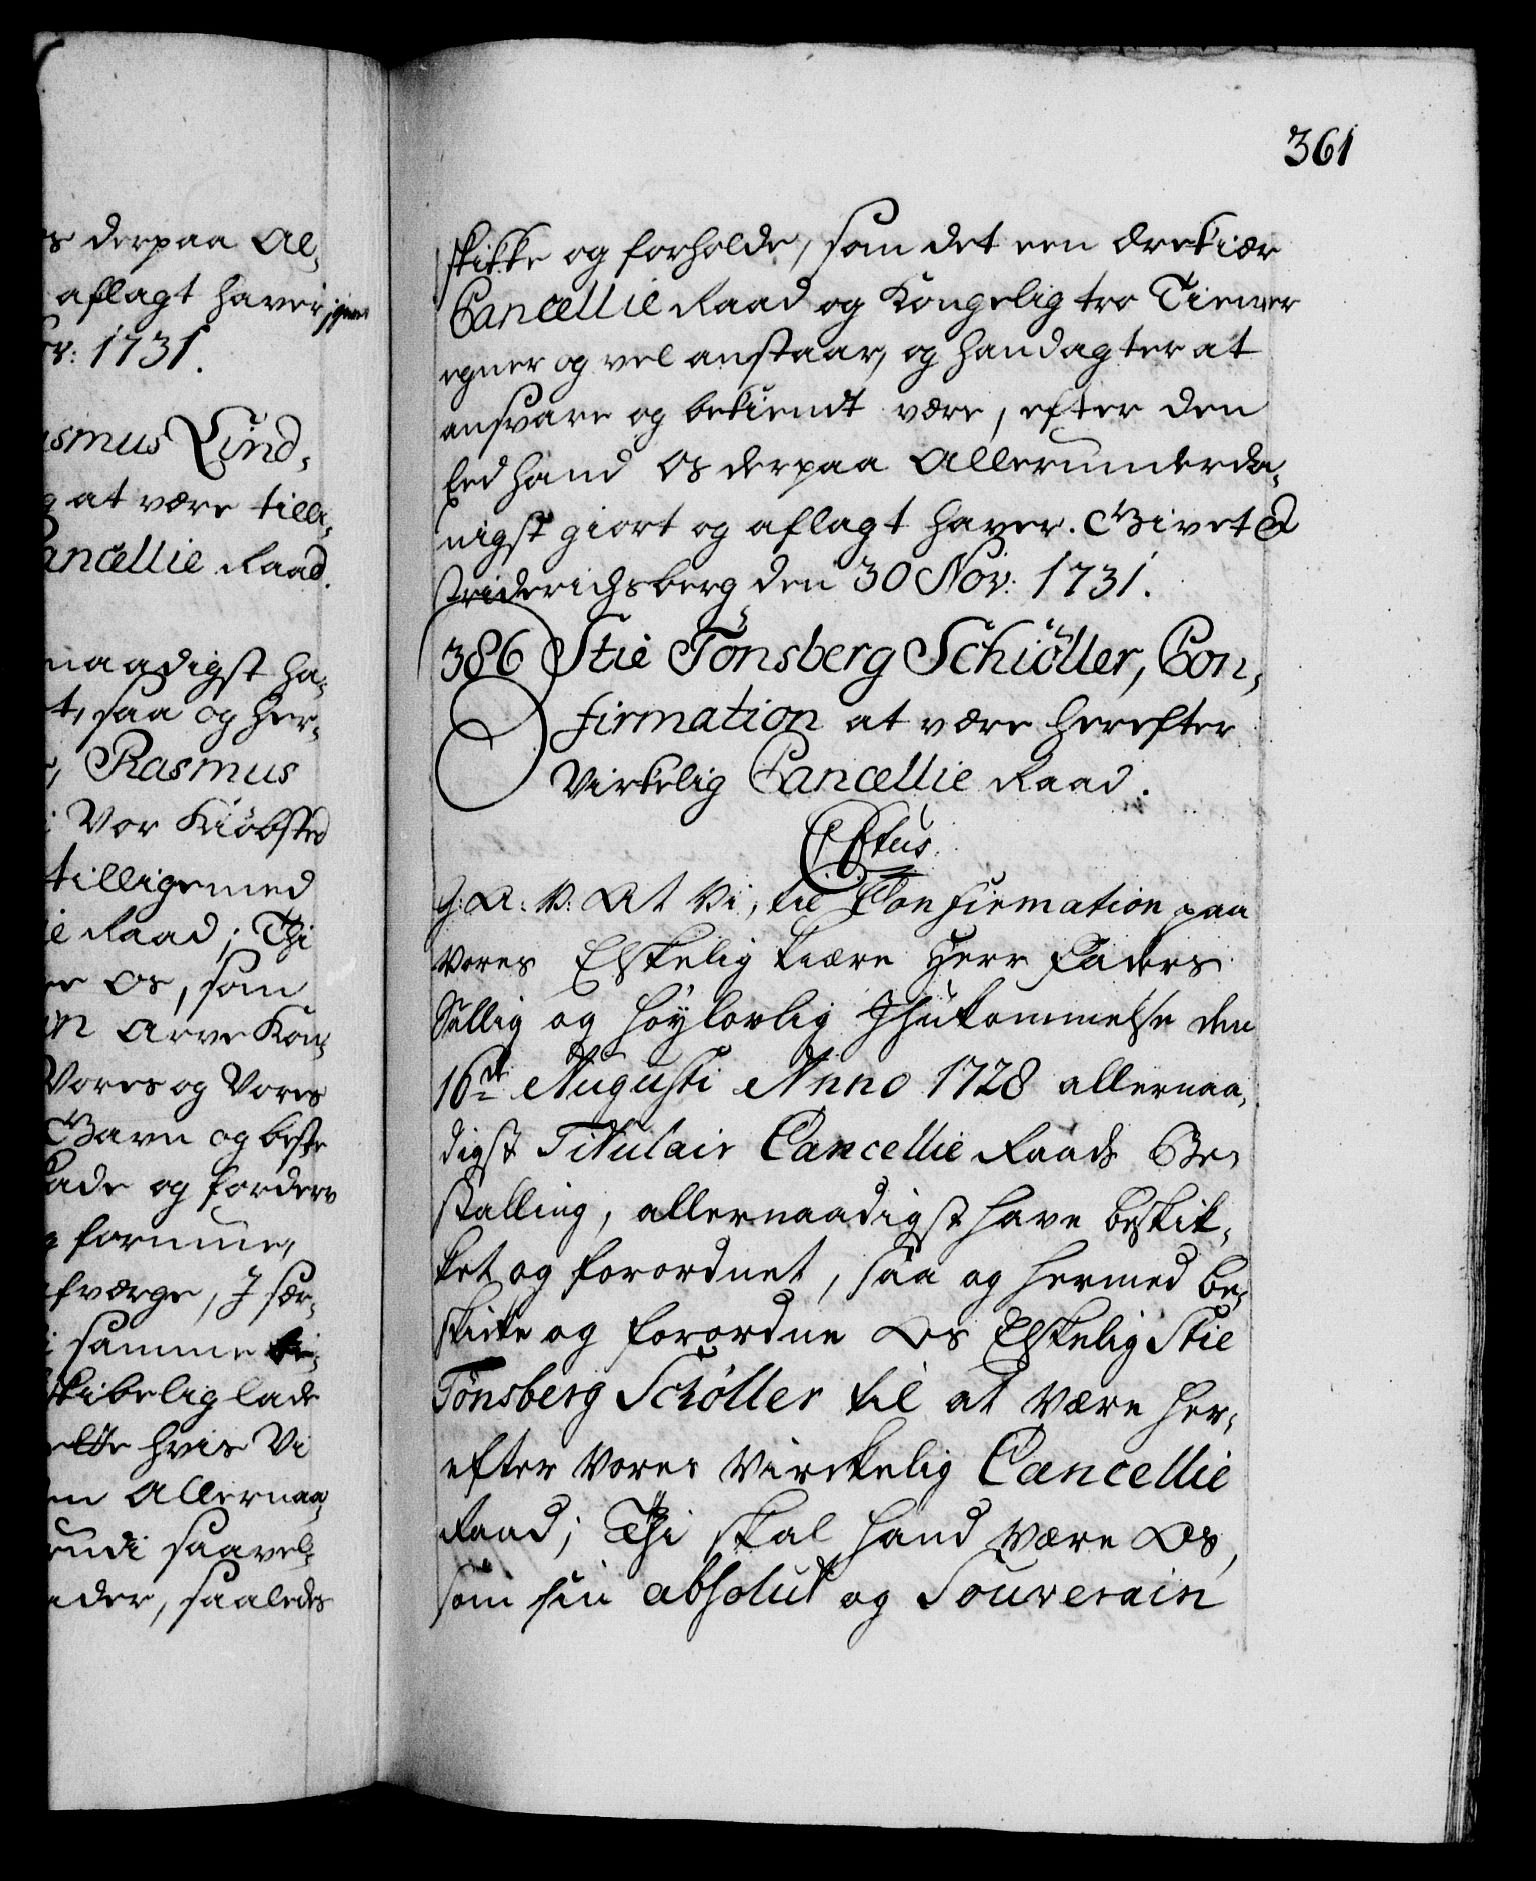 s derpaa Al-
aflagt haver,
1731.
asmus Lind,
g at være till-
ancellie Raad.
naadigst ha-
t, saa og her-
Rasmus
i Vor Kiöbsted
tilligemed
ie Raad; Thi
er Os, som
Arve Kon-
Vores og Vores
Gavn og beste
kade og fordervs
formue,
fværge, J sær-
i samme
skibelig lade
hvis Vi
en Allernaa-
saavel-
ader, saaledes
361
skikke og forholde, som det een ærekiær
Cancellie Raad og Kongelig tro Tienner
egner og vel anstaar, og hand agter at
ansvare og bekiendt være, efter den
Eed hand Os derpaa Allerunderda-
nigst giort og aflagt haver. Givet P
Friderichsberg den 30 Nov: 1731.
386 Stie Tönsberg Schiöller, Con-
firmation at være herefter
Virkelig Cancellie Raad.
C5tus.
G: A: V: At Vi, til Confirmation paa
Vores Elskelig kiære Herr Faders
Sallig og höylovlig Jhukommelse den
16de Augusti Anno 1728 allernaa-
digst Titulair Cancellie Raads Be-
stalling, allernaadigst have beskik-
ket og forordnet, saa og hermed be-
skicke og forordne Os Elskelig Stie
Tönsberg Schöller til at være her-
efter Vores Virckelig Cancellie
Raad; Thi skal hand være Os,
som sin absolut og Souverain